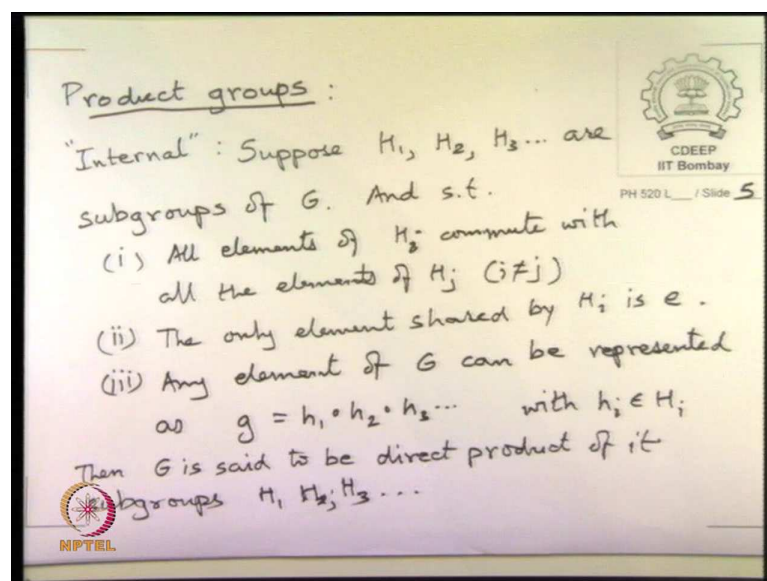 Product groups :
"Internal" : Suppose H₁, H₂, H₃... are
subgroups of G. And s.t.
(i) All elements of Hᵢ commute with
all the elements of Hⱼ (i≠j)
(ii) The only element shared by Hᵢ is e.
(iii) Any element of G can be represented
as g = h₁ • h₂ • h₃... with hᵢ ∈ Hᵢ
Then G is said to be direct product of it
subgroups H₁ H₂, H₃ ...
CDEEP
IIT Bombay
PH 520 L__ / Slide 5
NPTEL